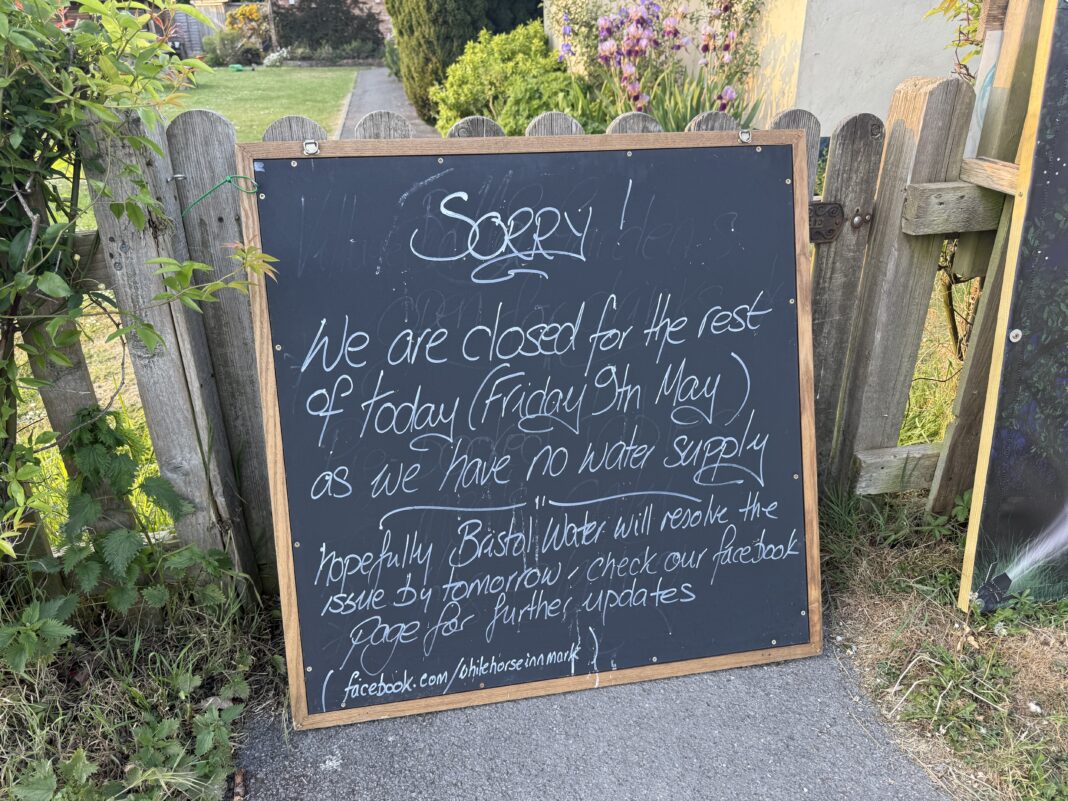 SORRY!
We are closed for the rest
of today (Friday 9th May)
as we have no water supply
hopefully Bristol Water will resolve the
issue by tomorrow, check our facebook
page for further updates
(facebook.com/whitehorseinnmark)